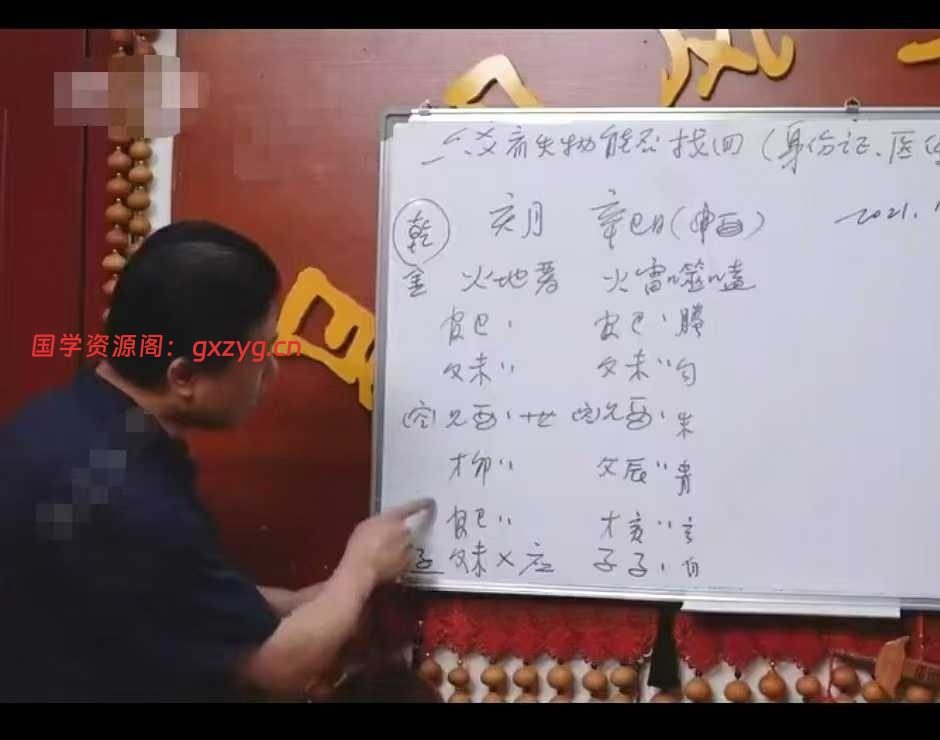 六爻卦失物能否找回（身份证、医
乾 亥月 辛巳日（申酉） 2021.
金 火地晋 火雷噬嗑
官巳、 官巳、腾
父未〃 父未〃勾
(空)兄酉、世 (空)兄酉、朱
才卯〃 父辰〃青
官巳〃 才寅〃玄
子 父未×应 子子、白
国学资源阁：gxzyg.cn